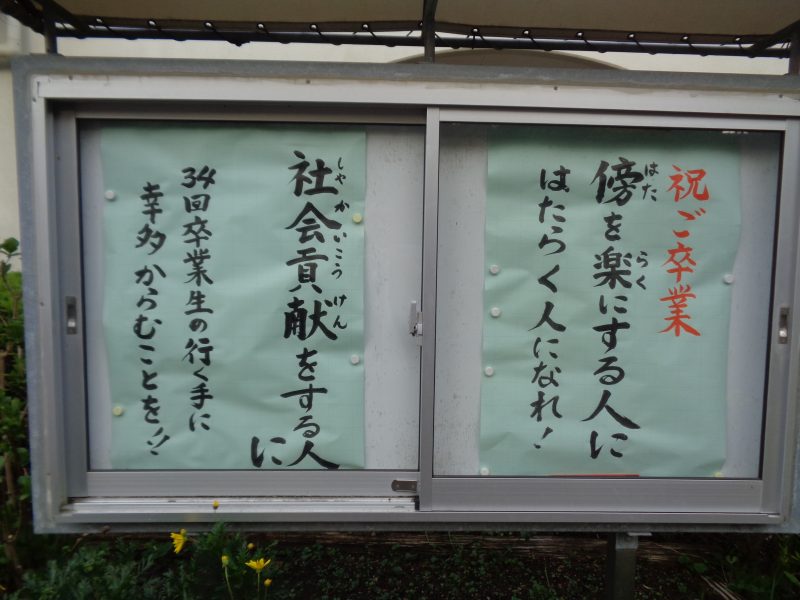 祝ご卒業
傍を楽にする人に
はた
らく
はたらく人になれ!
社会貢献をする人に
しゃかいこうけん
34回卒業生の行く手に
幸多からむことを!!